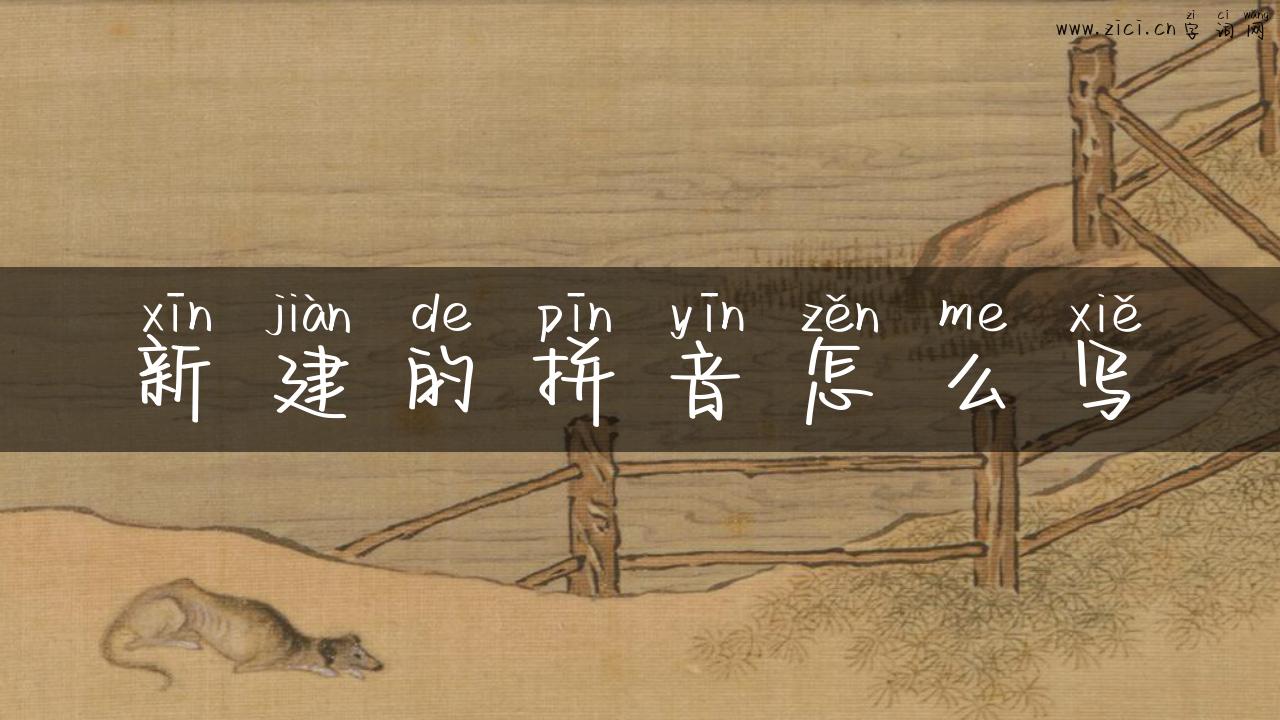 zi ci wang
www.zici.cn 字词网
xīn jiàn de pīn yīn zěn me xiě
新建的拼音怎么写